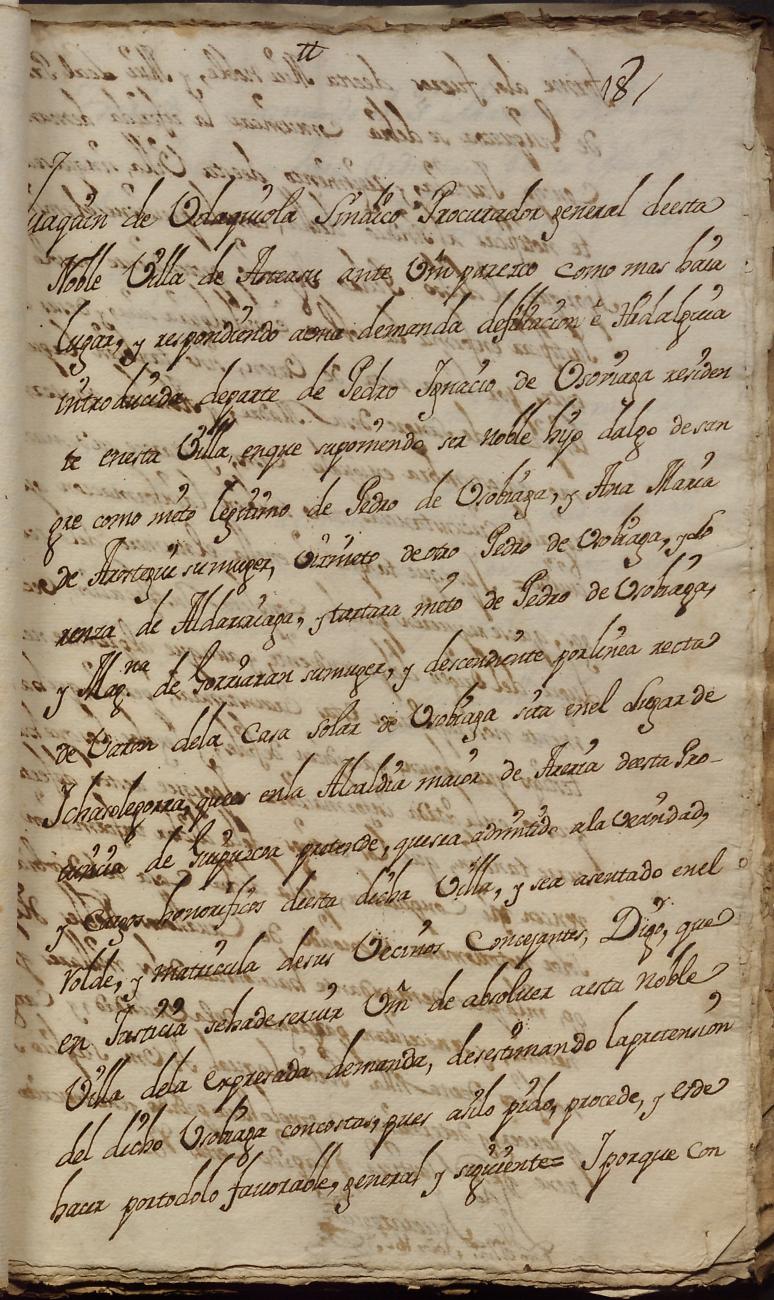 tt
181
Juaquin de Odaquiola Sindico Procurador general deesta
Noble Villa de Atteasu ante Vm parezco como mas haia
lugar, y respondiendo auna demanda defiliacion è Hidalguia
introducida departe de Pedro Ignacio de Osoriaga residen
te enesta Villa, enque suponiendo ser noble hijo dalgo desan
gre como nieto legitimo de Pedro de Usobiaga, y Ana Maria
de Arostegui sumuger, Visnieto deotro Pedro de Usobiaga, y Lo
renza de Aldarriaga, y tartara nieto de Pedro de Usobiaga,
y Mag.na de Gorriaran sumuger, y descendiente porlinea recta
de Varon dela Casa Solar de Usobiaga sita enel Lugar de
Ichasolegorra, quees enla Alcaldia maior de Areria deesta Pro-
vincia de Guipuzcoa pretende, quesea admitido ala vecindad,
y Cargos honorificos deesta dicha Villa, y sea asentado enel
rolde, y matricula desus Vecinos Concejantes, Digo, que
en Justicia sehadeservir Vm de absolver aesta Noble
Villa dela expresada demanda, desestimando lapretension
del dicho Usobiaga concostas, pues asilo pido, procede, y esde
hacer portodolo favorable, general y siguiente= Iporque con